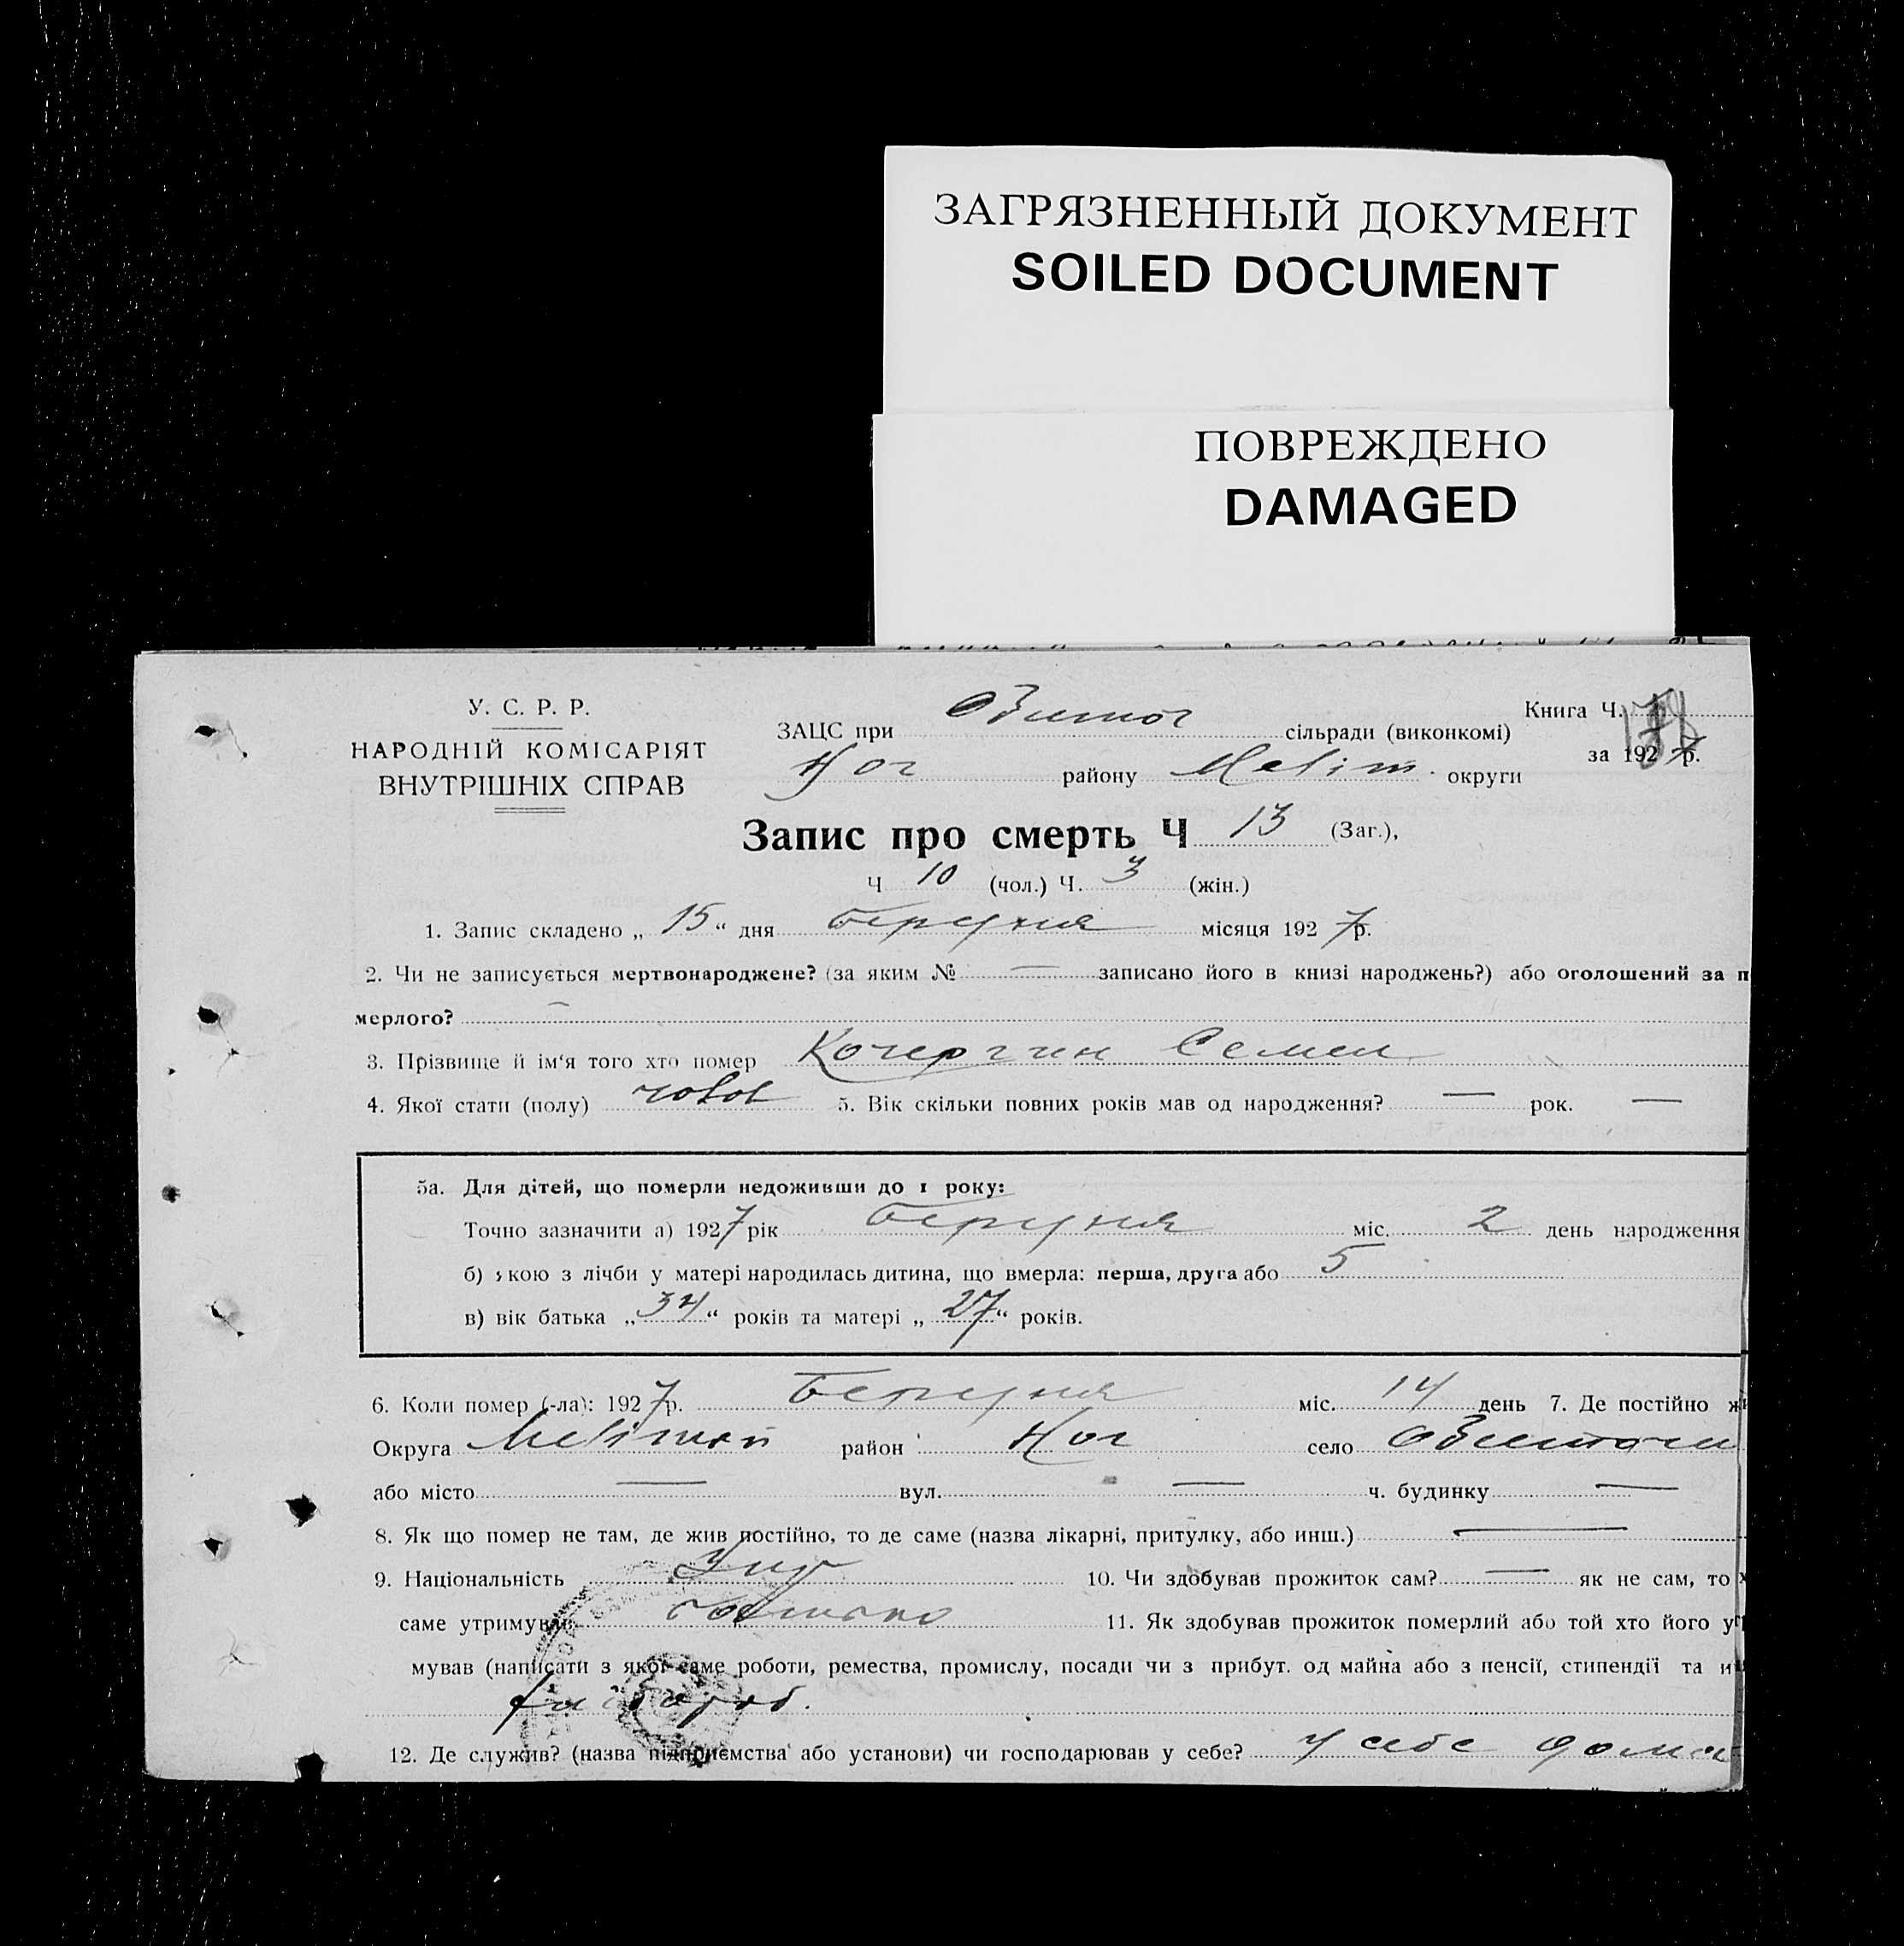 ЗАГРЯЗНЕННЫЙ ДОКУМЕНТ
SOILED DOCUMENT
ПОВРЕЖДЕНО
DAMAGED
У. С. Р. Р.
НАРОДНІЙ КОМІСАРІЯТ
ВНУТРІШНІХ СПРАВ
Книга Ч.
за 1927 р.
ЗАЦС при Обиточ сільради (виконкомі)
Ног району Меліт. округи
Запис про смерть Ч 13 (Заг.),
Ч 10 (чол.) Ч. 3 (жін.)
1. Запис складено „ 15 “ дня березня місяця 1927 р.
2. Чи не записується мертвонароджене? (за яким № — записано його в книзі народжень?) або оголошений за п
мерлого? —
3. Прізвище й ім'я того хто помер Кочергин Семен
4. Якої стати (полу) чолов 5. Вік скільки повних років мав од народження? — рок. —
5а. Для дітей, що померли недоживши до 1 року:
Точно зазначити а) 1927 рік березня міс. 2 день народження
б) якою з лічби у матері народилась дитина, що вмерла: перша, друга або 5
в) вік батька „ 34 “ років та матері „ 27 “ років.
6. Коли помер (-ла): 1927 р. березня міс. 14 день 7. Де постійно жи
Округа Мелітоп район Ног село Обиточи
або місто — вул. — ч. будинку —
8. Як що помер не там, де жив постійно, то де саме (назва лікарні, притулку, або инш.) —
9. Національність Укр 10. Чи здобував прожиток сам? — як не сам, то х
саме утримував батько 11. Як здобував прожиток померлий або той хто його ут
мував (написати з якої саме роботи, ремества, промислу, посади чи з прибут. од майна або з пенсії, стипендії та и
12. Де служив? (назва підприємства або установи) чи господарював у себе? у себе дома